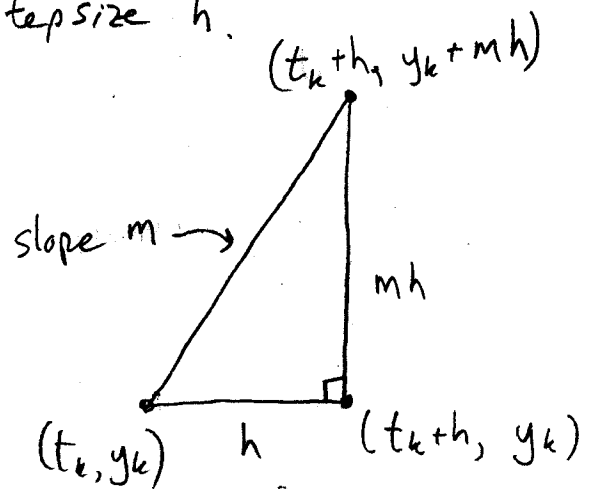 tepsize h.
(t_k+h, y_k+mh)
slope m →
mh
(t_k, y_k)
h
(t_k+h, y_k)